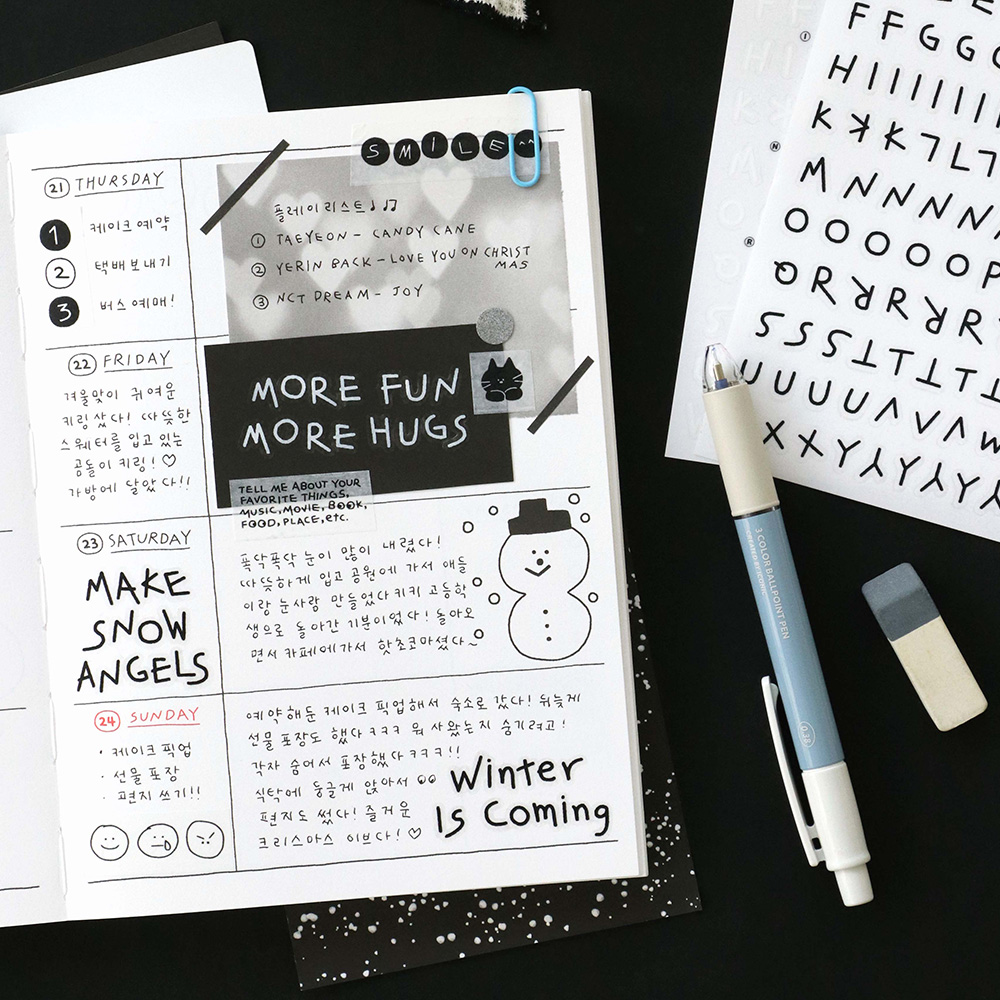 SMILE ^^
21 THURSDAY
1 케이크 예약
2 택배 보내기
3 버스 예매!
플레이리스트♩♫
① TAEYEON - CANDY CANE
② YERIN BACK - LOVE YOU ON CHRIST
MAS
③ NCT DREAM - JOY
MORE FUN
MORE HUGS
TELL ME ABOUT YOUR
FAVORITE THINGS,
MUSIC, MOVIE, BOOK,
FOOD, PLACE, etc.
22 FRIDAY
겨울맞이 귀여운
키링 샀다! 따뜻한
스웨터를 입고 있는
곰돌이 키링! ♡
가방에 달았다!!
23 SATURDAY
MAKE
SNOW
ANGELS
폭닥폭닥 눈이 많이 내렸다!
따뜻하게 입고 공원에 가서 애들
이랑 눈사람 만들었다 키키 고등학
생으로 돌아간 기분이었다! 돌아오
면서 카페에 가서 핫초코 마셨다~
24 SUNDAY
· 케이크 픽업
· 선물 포장
· 편지 쓰기!!
예약해둔 케이크 픽업해서 숙소로 갔다! 뒤늦게
선물 포장도 했다 ㅋㅋㅋ 뭐 사왔는지 숨기려고!
각자 숨어서 포장했다 ㅋㅋㅋ!!
식탁에 둥글게 앉아서
편지도 썼다! 즐거운
크리스마스 이브다! ♡
Winter
Is Coming
FFGGG
HIIIIIII
KKKLL
MNNNN
OOOOOP
QRRRR
SSSSTTTT
UUUUVVW
XXYYYY
3 COLOR BALLPOINT PEN
CREATED BY ICONIC
0.38